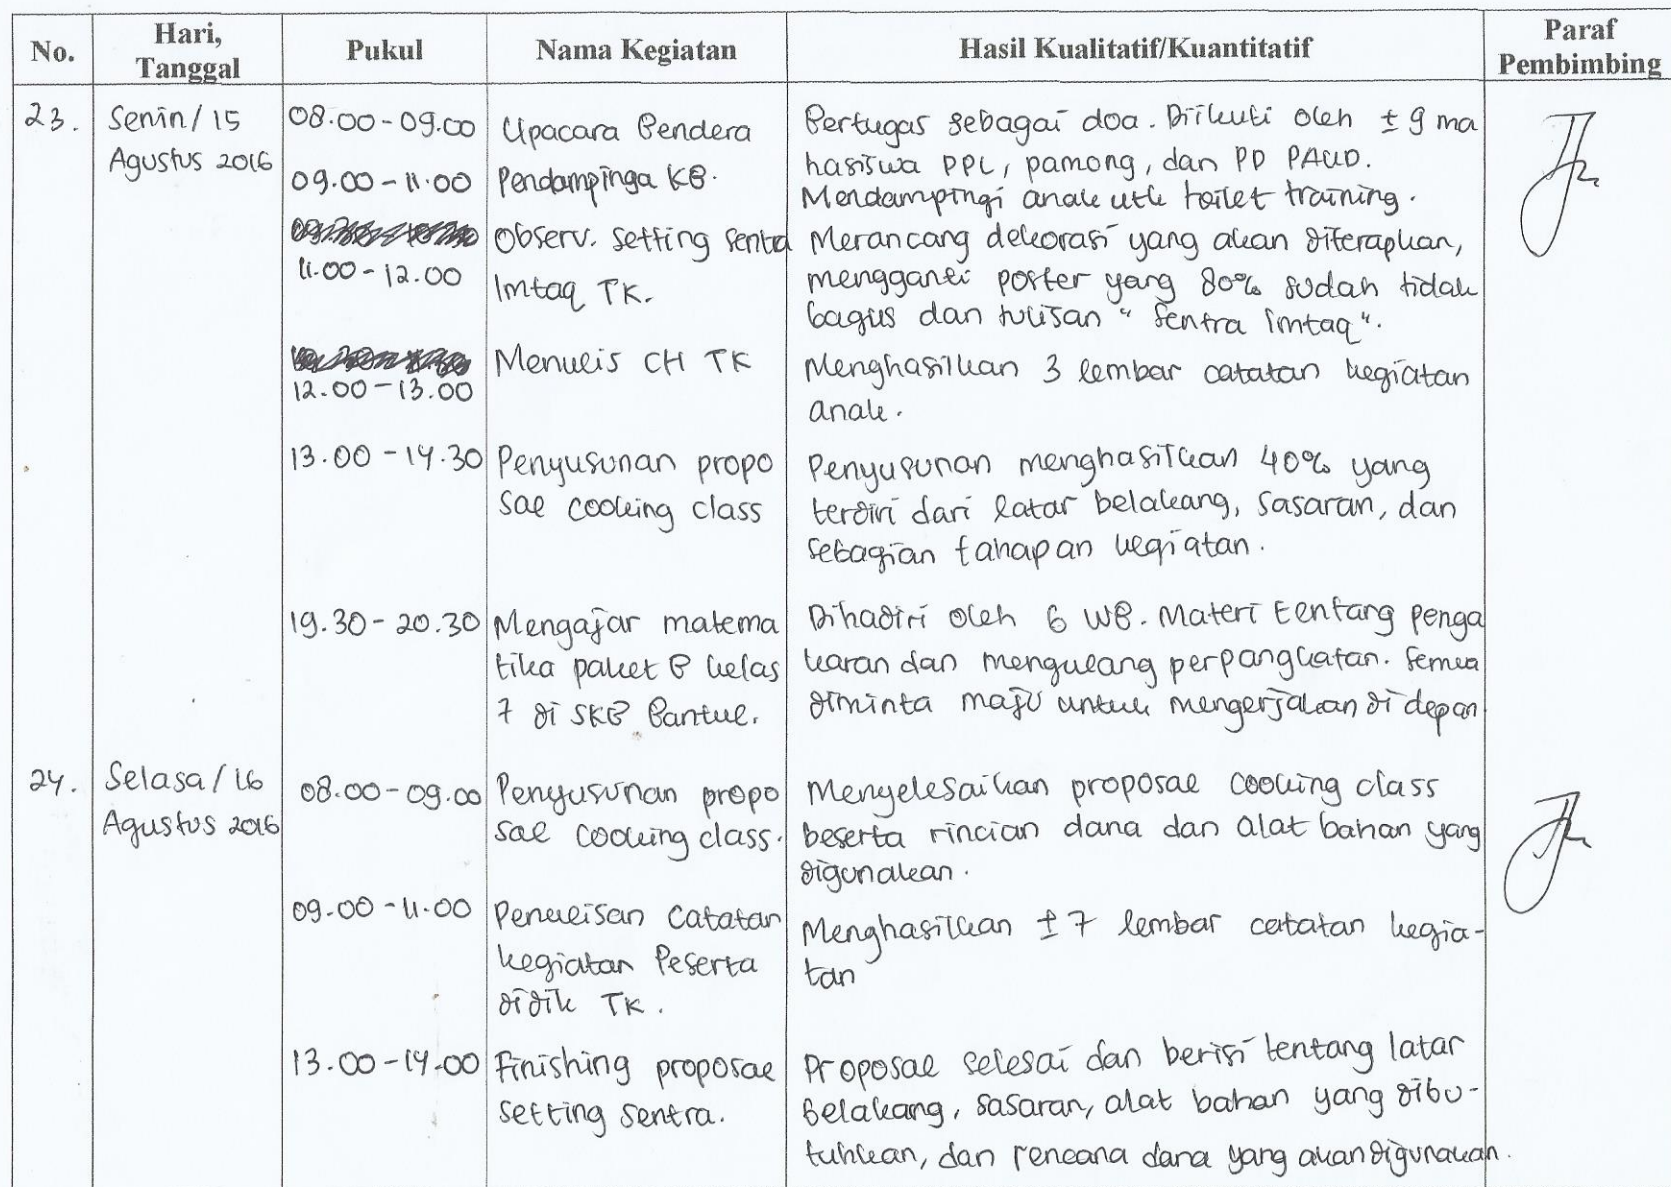 No. Hari, Tanggal Pukul Nama Kegiatan Hasil Kualitatif/Kuantitatif Paraf Pembimbing
23. Senin/15 Agustus 2016
08.00-09.00 Upacara Bendera
Bertugas sebagai doa. Diikuti oleh ± 9 ma
hasiswa PPL, pamong, dan PD PAUD.
09.00-11.00 Pendampinga KB.
Mendampingi anak utk toilet training.
11.00-12.00 Observ. setting sentra
Imtaq TK.
Merancang dekorasi yang akan diterapkan,
mengganti poster yang 80% sudah tidak
bagus dan tulisan "Sentra Imtaq".
12.00-13.00 Menulis CH TK
Menghasilkan 3 lembar catatan kegiatan
anak.
13.00-14.30 Penyusunan propo
sal cooking class
Penyusunan menghasilkan 40% yang
terdiri dari latar belakang, sasaran, dan
sebagian tahapan kegiatan.
19.30-20.30 Mengajar matema
tika paket B kelas
7 di SKB Bantul.
Dihadiri oleh 6 WB. Materi tentang penga
karan dan mengulang perpangkatan. Semua
diminta maju untuk mengerjakan di depan
24. Selasa/16 Agustus 2016
08.00-09.00 Penyusunan propo
sal cooking class.
Menyelesaikan proposal cooking class
beserta rincian dana dan alat bahan yang
digunakan.
09.00-11.00 Penulisan Catatan
kegiatan Peserta
didik TK.
Menghasilkan ± 7 lembar catatan kegia-
tan
13.00-14.00 Finishing proposal
setting sentra.
Proposal selesai dan berisi tentang latar
belakang, sasaran, alat bahan yang dibu-
tuhkan, dan rencana dana yang akan digunakan.